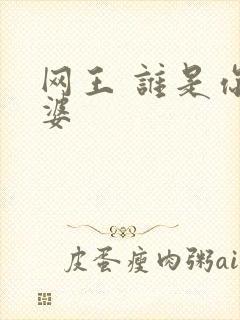 网王 誰是你
婆
皮蛋瘦肉粥ai